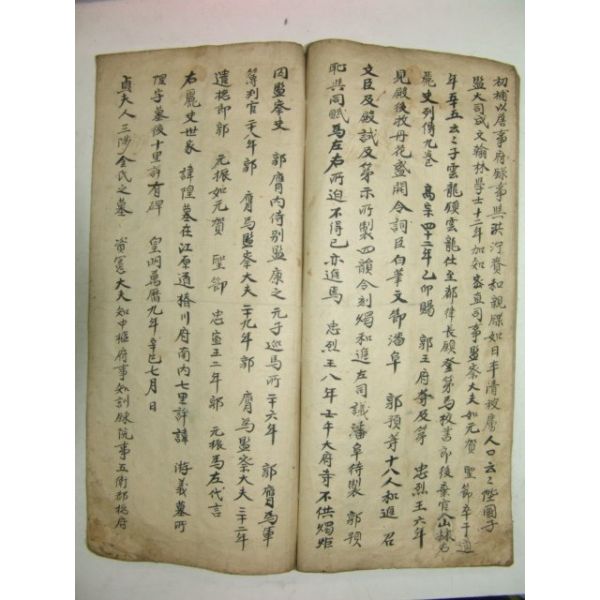 初補以詹事府錄事與洪泞賫和親牒如日本請被虜人口云云陞國子
監大司成文翰林學士十二年加知密直司事監察大夫如元賀聖節卒于道
年五云云子雲龍鎭雲龍仕至都律長鎭登第爲校書郎後棄官山林名
麗史列傳九卷 高宗四十二年乙卯賜 郭王府等及第 忠烈王六年
見殿後牧丹花盛開令詞臣白華文卸潘阜 郭預等十八人和進 召
文臣及殿試及第示所製四韻令刻燭和進左司議潘阜特製 郭預
恥與同賦爲左右所迫不得已亦進焉 忠烈王八年壬午大府寺不供燭
因監察史 郭膺內侍別監康之元子巡馬所 二十六年 郭膺爲軍
簿判官 二十八年郭 膺爲監察大夫 二十九年郭 膺爲監察大夫 三十二年
遣摠郎郭 元振如元賀 聖節 忠宣王二年郭 元振爲左代言
右麗史世家 諱隍墓在江原道椿川府南內七里許諱 游義墓所
悝字墓後十里許有碑 皇明萬曆九年辛巳七月日
貞夫人三陟全氏之墓 資憲大夫知中樞府事知訓鍊院事五衛都摠府